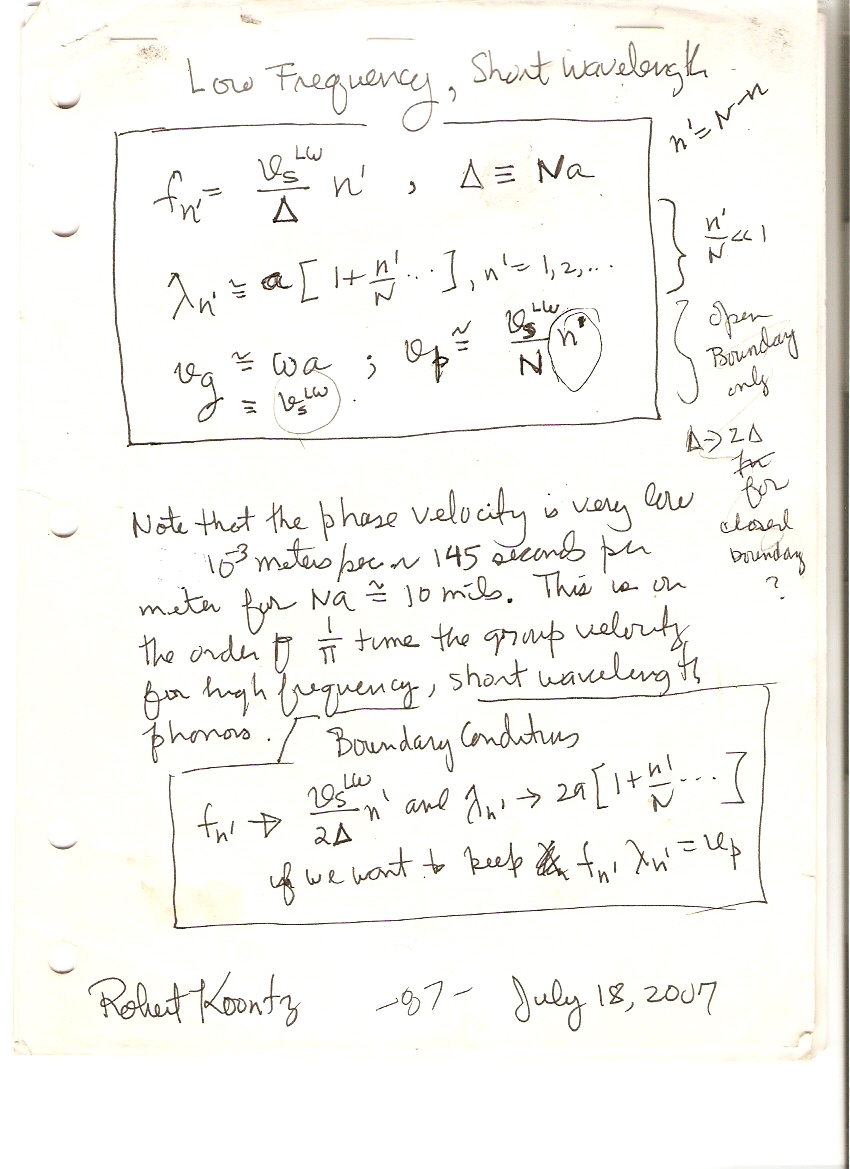 Low Frequency, Short Wavelength
n' = N-n
f_n' = v_s^LW / Δ n' , Δ ≡ Na
λ_n' ≅ a [ 1 + n'/N ... ] , n' = 1, 2, ...
n'/N << 1
v_g ≅ ωa ; v_p ≅ v_s^LW / N n'
≡ v_s^LW
Open
Boundary
only
Δ → 2Δ
for
closed
boundary
?
Note that the phase velocity is very low
10^-3 meters/sec ~ 145 seconds per
meter for Na ≅ 10 mils. This is on
the order of 1/π time the group velocity
for high frequency, short wavelength
phonons.
Boundary Conditions
f_n' → v_s^LW / 2Δ n' and λ_n' → 2a [ 1 + n'/N ... ]
if we want to keep f_n' λ_n' = v_p
Robert Koontz -87- July 18, 2007